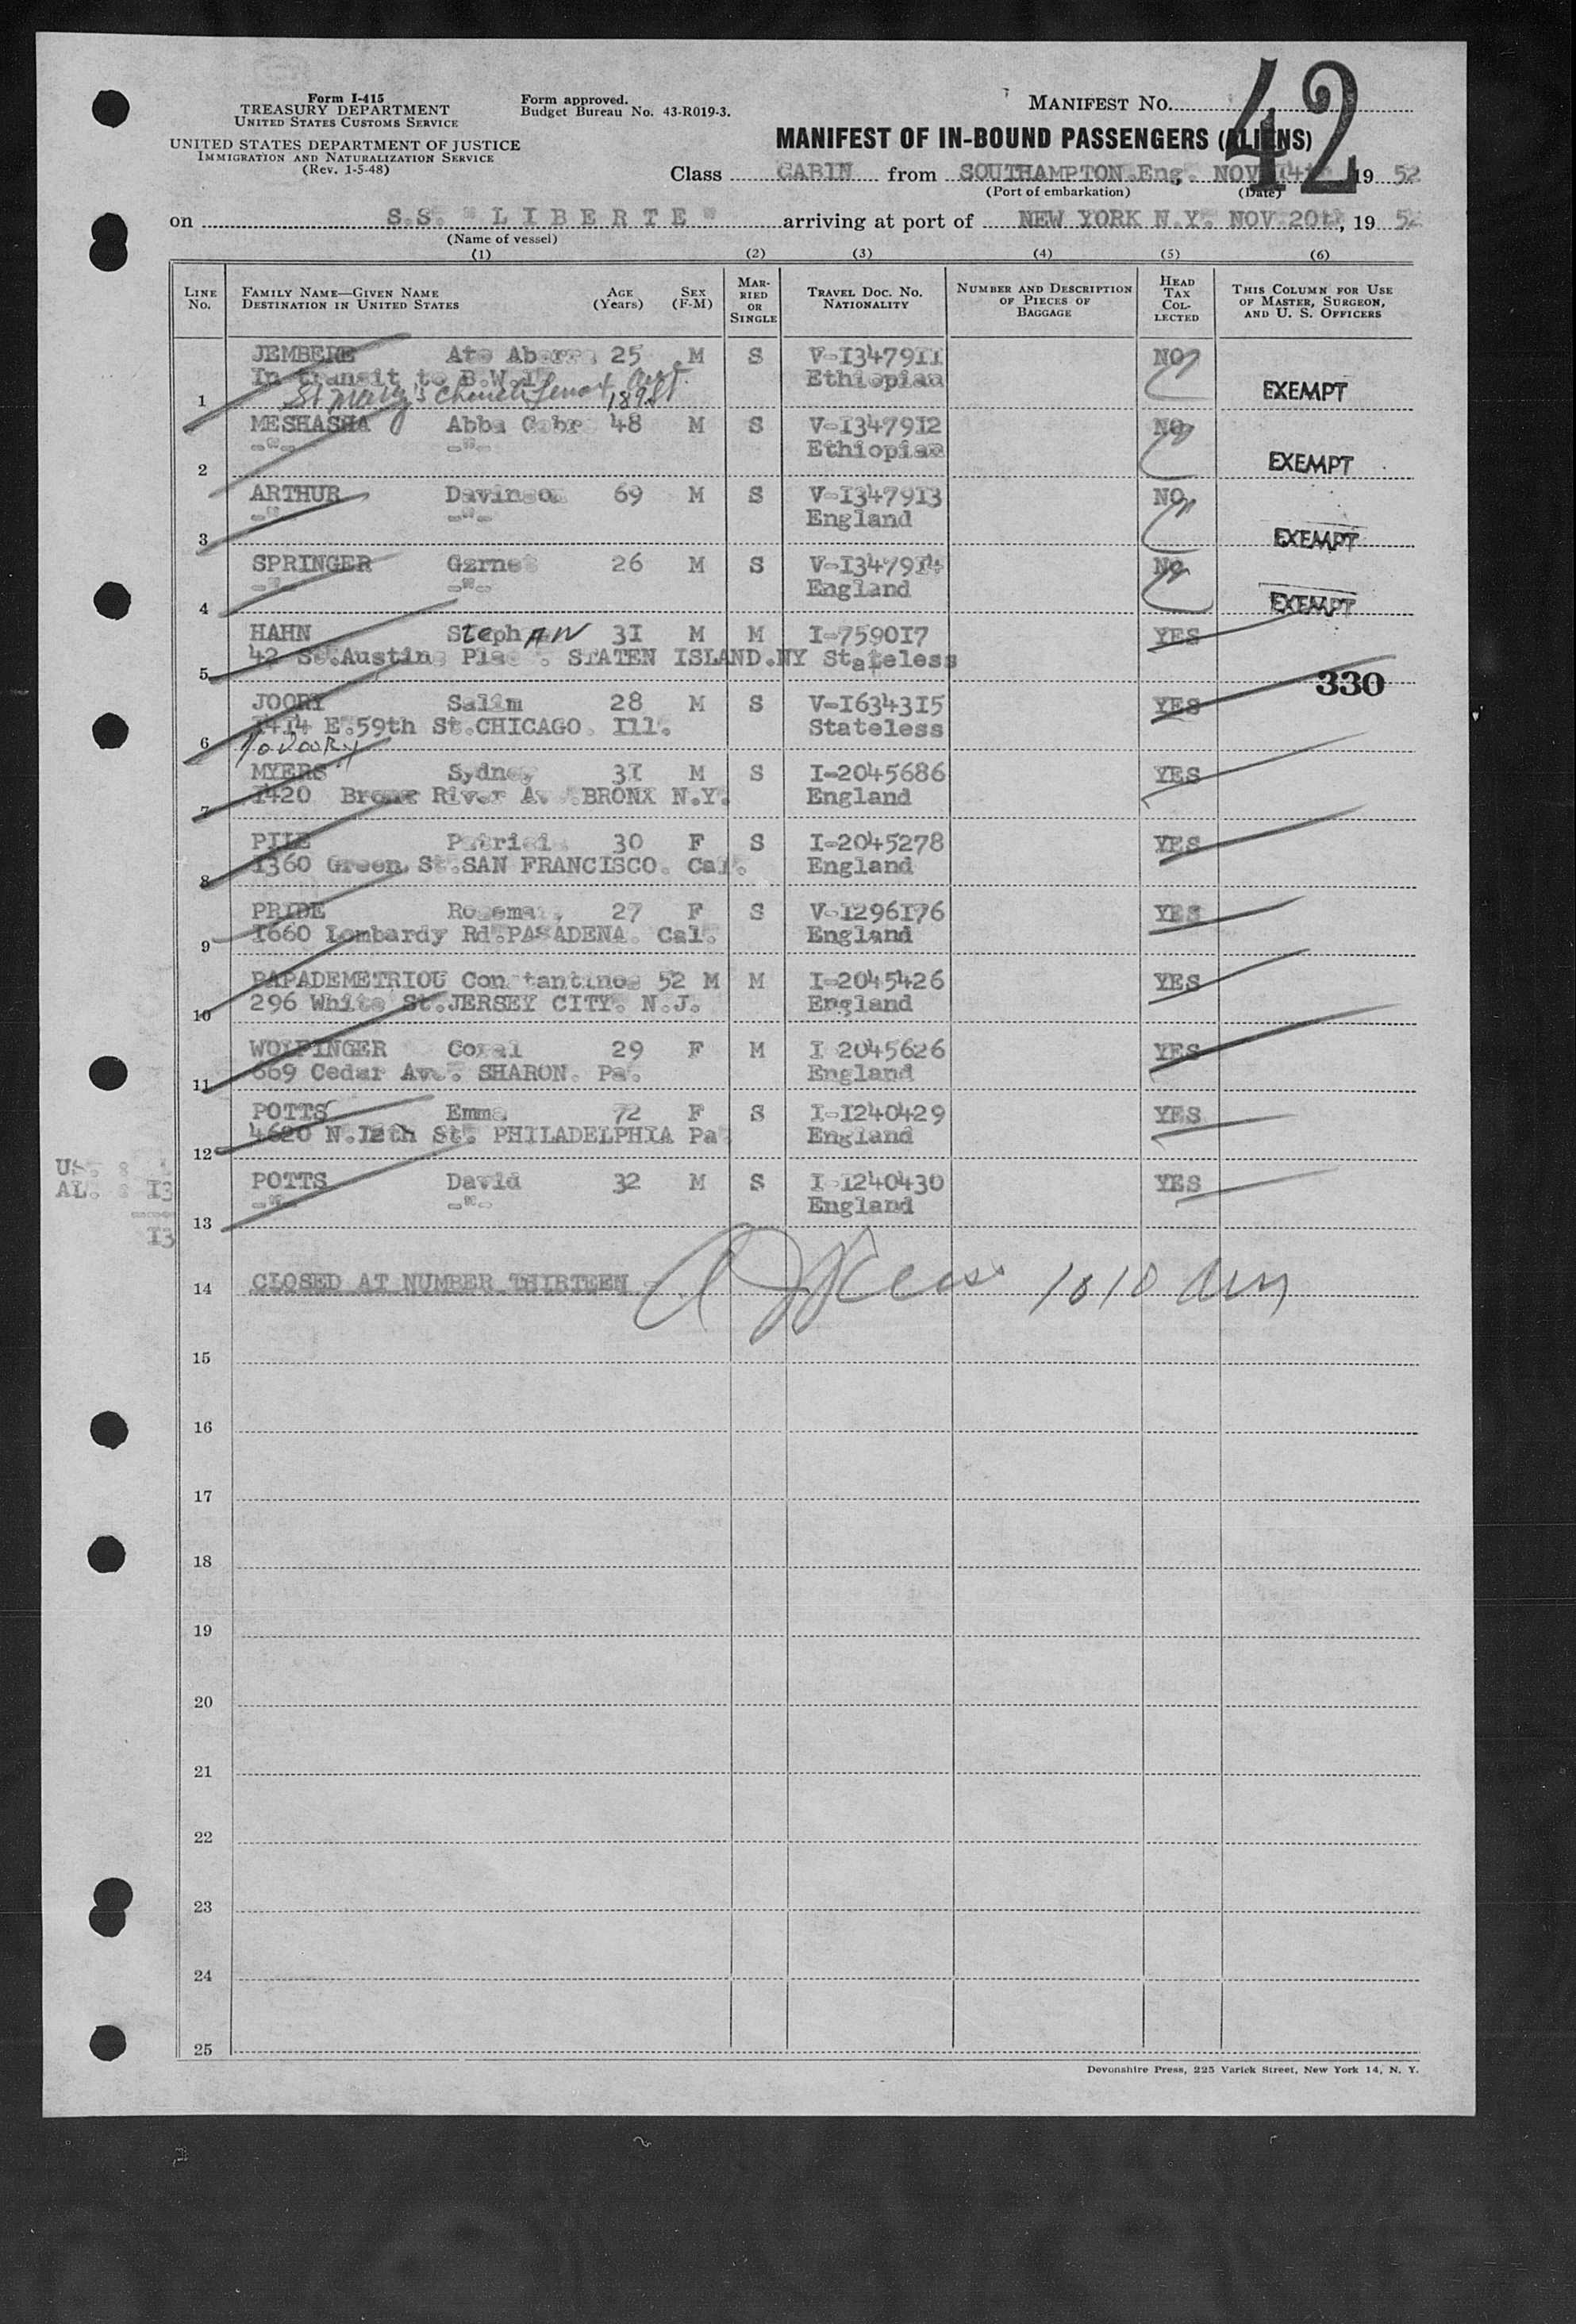 Form I-415
TREASURY DEPARTMENT
UNITED STATES CUSTOMS SERVICE
UNITED STATES DEPARTMENT OF JUSTICE
IMMIGRATION AND NATURALIZATION SERVICE
(Rev. 1-5-48)
Form approved.
Budget Bureau No. 43-R019-3.
MANIFEST No. 42
MANIFEST OF IN-BOUND PASSENGERS (ALIENS)
Class CABIN from SOUTHAMPTON.Eng. NOV 14th 19 52
(Port of embarkation) (Date)
on S.S. "LIBERTE" arriving at port of NEW YORK N.Y. NOV 20th, 19 52
(Name of vessel)
(1) (2) (3) (4) (5) (6)
LINE No. FAMILY NAME—GIVEN NAME DESTINATION IN UNITED STATES AGE (Years) SEX (F-M) MARRIED OR SINGLE TRAVEL DOC. No. NATIONALITY NUMBER AND DESCRIPTION OF PIECES OF BAGGAGE HEAD TAX COLLECTED THIS COLUMN FOR USE OF MASTER, SURGEON, AND U. S. OFFICERS
JEMBERE Ato Aberra 25 M S V-1347911 NO
In transit to B.W.I. Ethiopian EXEMPT
1 St Mary's Church 1898
MESHASHA Abba Gabr 48 M S V-1347912 NO
-"- -"- Ethiopian
2 EXEMPT
ARTHUR Davinson 69 M S V-1347913 NO
-"- -"- England
3 EXEMPT
SPRINGER Garnet 26 M S V-1347914 NO
-"- -"- England
4 EXEMPT
HAHN Stephan 31 M M I-759017 YES
42 St.Austins Place. STATEN ISLAND.NY Stateless
5 330
JOORY Salim 28 M S V-1634315 YES
1414 E.59th St.CHICAGO. Ill. Stateless
6
MYERS Sydney 31 M S I-2045686 YES
1420 Bronx River Av.BRONX N.Y. England
7
PILE Patricia 30 F S I-2045278 YES
1360 Green St.SAN FRANCISCO. Cal. England
8
PRIDE Rosemary 27 F S V-1296176 YES
1660 Lombardy Rd.PASADENA. Cal. England
9
PAPADEMETRIOU Constantinos 52 M M I-2045426 YES
296 White St.JERSEY CITY. N.J. England
10
WOLFINGER Coral 29 F M I 2045626 YES
669 Cedar Av. SHARON. Pa. England
11
POTTS Emma 72 F S I-1240429 YES
4620 N.12th St. PHILADELPHIA Pa England
12
US. :
POTTS David 32 M S I-1240430 YES
AL. : 13
-"- -"- England
13
13
14 CLOSED AT NUMBER THIRTEEN - 1010 am
15
16
17
18
19
20
21
22
23
24
25
Devonshire Press, 225 Varick Street, New York 14, N. Y.